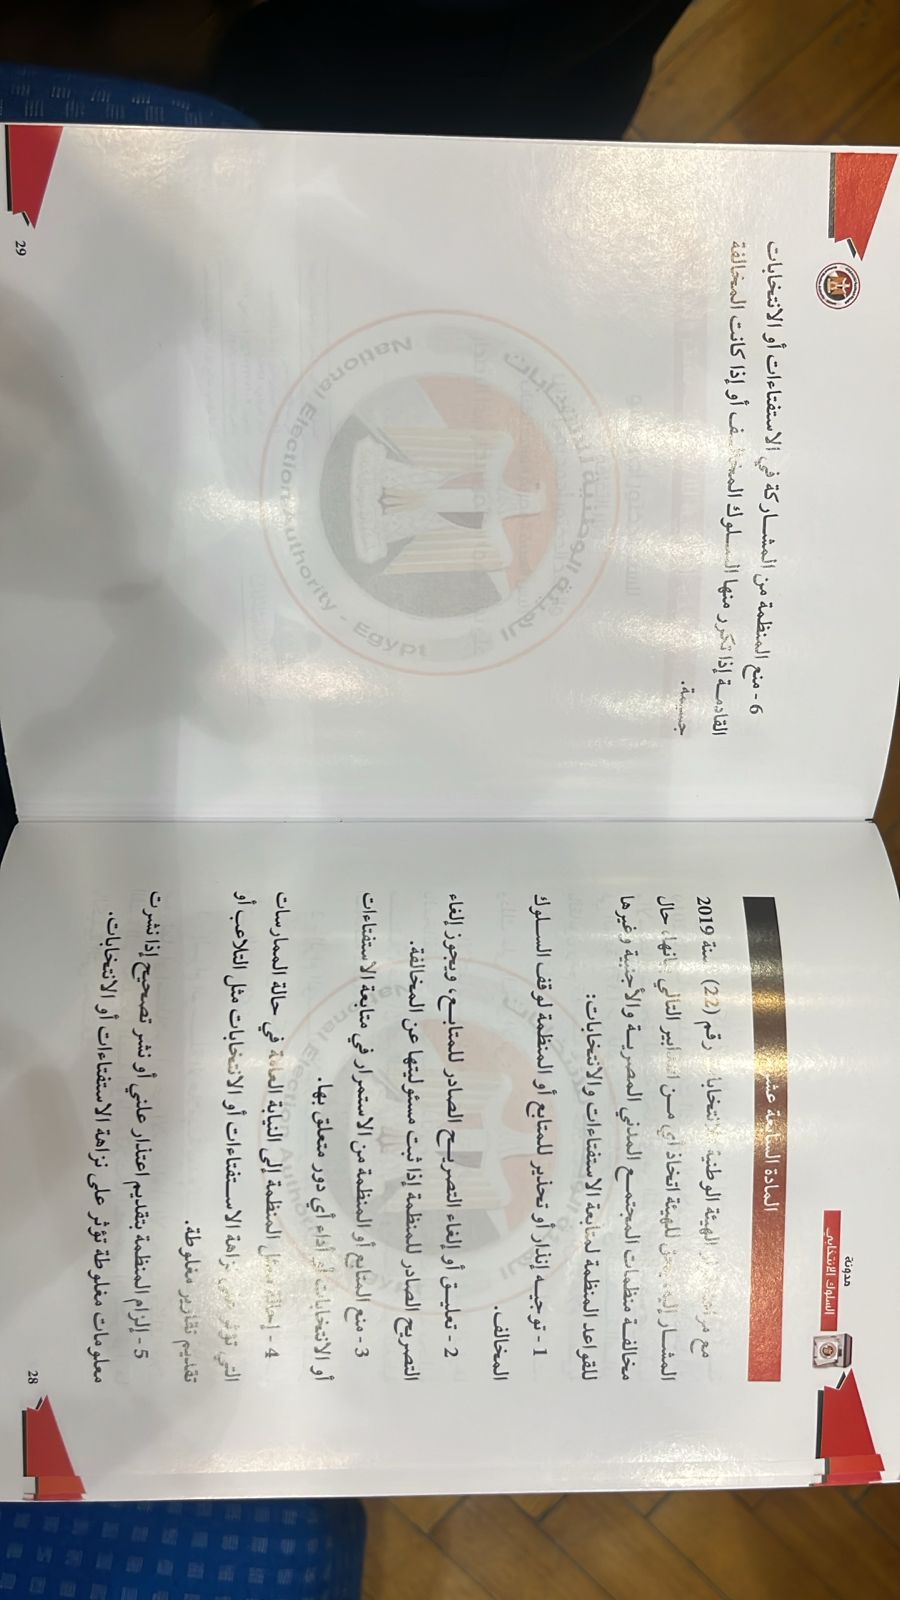 مدونة
السلوك الانتخابي
المادة السابعة عشر
مع الهيئة الوطنية رقم (22) سنة 2019
المشار إليه للهيئة اتخاذ أي من التدابير التالي بيانها، حال
مخالفة منظمات المجتمع المدني المصرية والأجنبية وغيرها
للقواعد المنظمة لمتابعة الاستفتاءات والانتخابات:
1 - توجيه إنذار أو تحذير للمتابع أو المنظمة لوقف السلوك
المخالف.
2 - تعليق أو إلغاء التصريح الصادر للمتابع، ويجوز إلغاء
التصريح الصادر للمنظمة إذا ثبت مسئوليتها عن المخالفة.
3 - منع المتابع أو المنظمة من الاستمرار في متابعة الاستفتاءات
أو الانتخابات أو أداء أي دور متعلق بها.
4 - إحالة ممثل المنظمة إلى النيابة العامة في حالة الممارسات
التي تؤثر على نزاهة الاستفتاءات أو الانتخابات مثل التلاعب أو
تقديم تقارير مغلوطة.
5 - إلزام المنظمة بتقديم اعتذار علني أو نشر تصحيح إذا نشرت
معلومات مغلوطة تؤثر على نزاهة الاستفتاءات أو الانتخابات.
28
6 - منع المنظمة من المشاركة في الاستفتاءات أو الانتخابات
القادمة إذا تكرر منها السلوك المخالف أو إذا كانت المخالفة
جسيمة.
الهيئة الوطنية للانتخابات
National Election Authority - Egypt
29